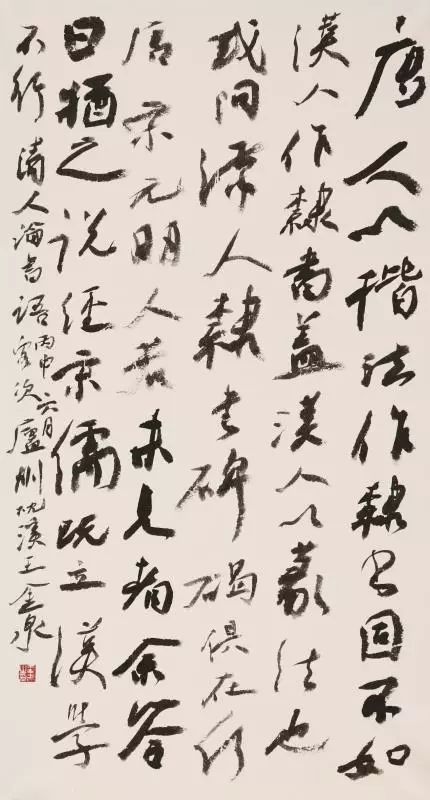 唐人以楷法作隸書固不如
漢人作隸書蓋漢人以篆法也
或问漢人隸書碑碣俱在何
唐宋元明人若未見者余答
曰猶之说經宋儒既立漢學
不行 清人論書語 丙申六月客次廬州枕溪王金泉